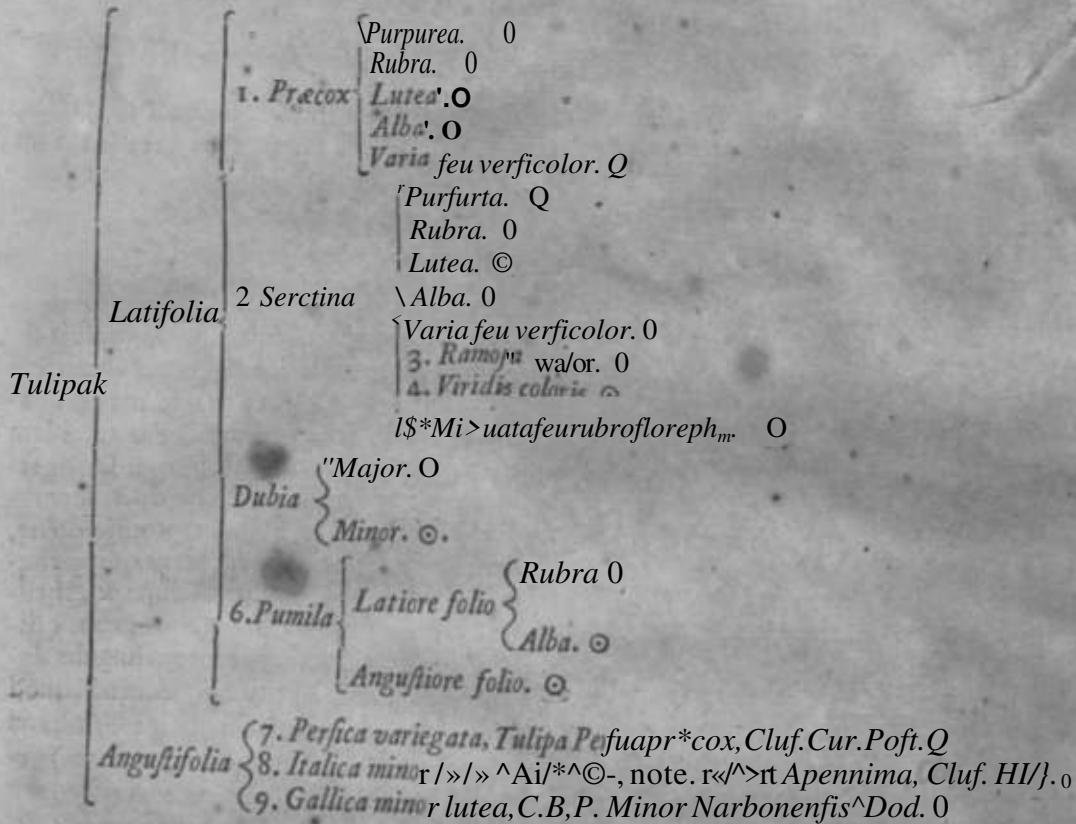 \Purpurea. 0
Rubra. 0
1. Præcox Lutea'.O
Alba'. O
Varia feu verficolor. Q
r Purfurta. Q
Rubra. 0
Lutea. ©
Latifolia 2 Serctina \ Alba. 0
Varia feu verficolor. 0
3. Ramofa wa/or. 0
Tulipak 4. Viridis coloris ⊙
l$*Mi>uatafeurubrofloreph_m. O
Dubia "Major. O
Minor. ⊙.
6.Pumila Latiore folio Rubra 0
Alba. ⊙
Anguſtiore folio. ⊙
Anguſtifolia 7. Perſica variegata, Tulipa Perfuapr*cox,Cluf.Cur.Poft.Q
8. Italica minor /»/» ^Ai/*^©-, note. r«/^>rt Apennima, Cluf. HI/}. 0
9. Gallica minor lutea,C.B,P. Minor Narbonenfis^Dod. 0